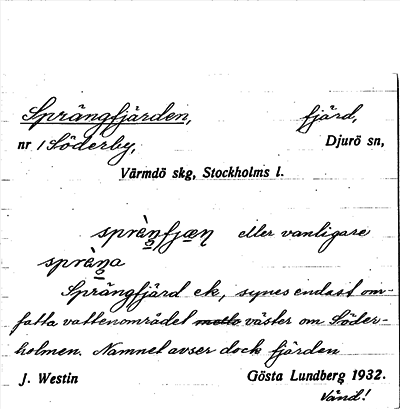 Sprängfjärden, fjärd,
nr 1 Söderby, Djurö sn,
Värmdö skg, Stockholms l.
eller vanligare
Sprängfjärd ek, synes endast om-
fatta vattenområdet väster om Söder-
holmen. Namnet avser dock fjärden
J. Westin Gösta Lundberg 1932.
Vänd!